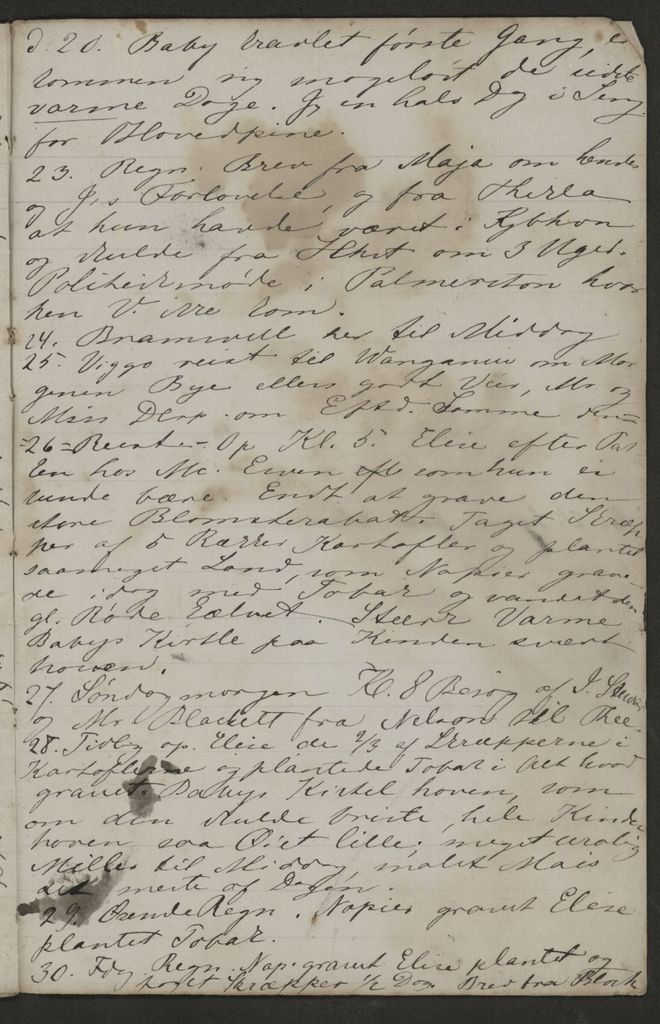 d. 20. Baby kravlet første Gang, er
kommen sig mageløst de sidste
varme Dage. Jeg en halv Dg i Seng
for Hovedpine.
23. Regn. Brev fra Maja om hendes
og J,s Forlovelse, og fra Thekla
at hun havde været i Kjbhvn
og skulde fra om 3 Uger.
Politiskmøde i Palmerston hvor
hen V. ikke kom.
24. Bramwell her til Middag
25. Viggo reist til Wanganui om Mor
genen Bye ellers godt Veir, Mr. og
Miss om Eftd. Samme
=26= Op Kl. 5. Elise efter
hos Mc. Ewen som hun ei
kunde bære Endt at grave den
store Blomsterabat. Taget Skræp
per af 5 Rækker Kartofler og plantet
saameget Land, som Napier grave
de idag med Tobak og vandet den
gl. Røde Kalvet. Stærk Varme
Babys Kirtle paa Kinden svært
hoven.
27. Søndagmorgen Kl. 8 Besøg af J.
og Mr. Blackett fra Nelson til Thee.
28. Tidlig op. Elise de 2/3 af Skræpperne i
Kartoflerne og plantede Tobak i alt hvad
gravet. Babys Kirtel hoven, som
om den skulde briste, hele Kinden
hoven saa Øiet lille; meget urolig
Miller til Middag, malet Mais
det meste af Dagen.
29. Øsende Regn. Napier gravet Elise
plantet Tobak.
30. Fdg Regn. Nap. gravet Elise plantet og
Skræpper 1/2 Dag. Brev fra Block